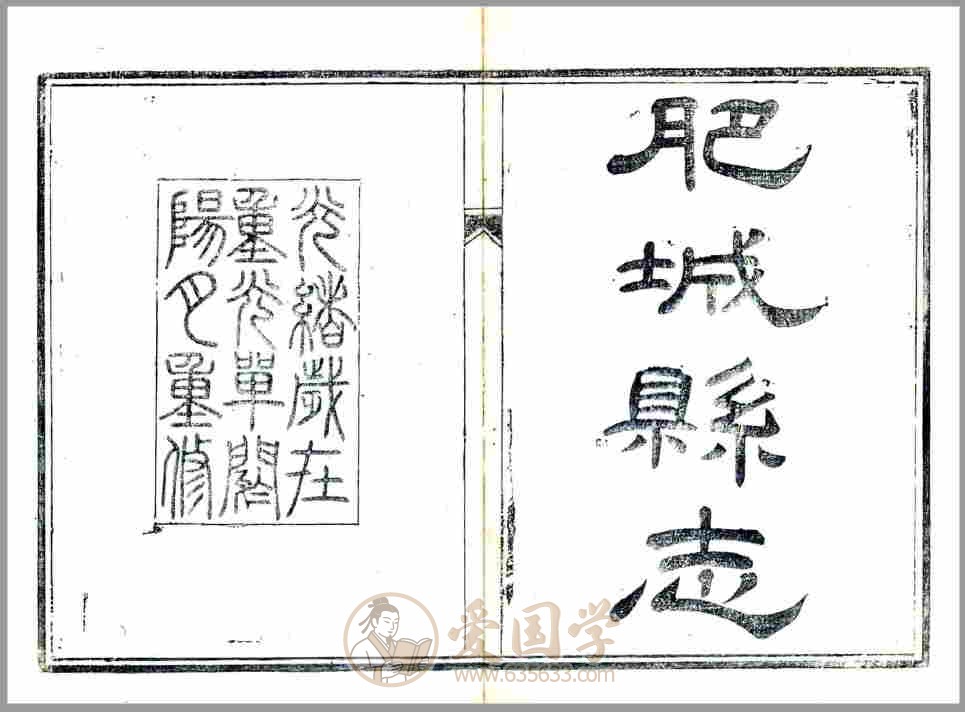 肥城縣志
光緒歲在
重光單閼
陽月重修
爱国学
www.635633.com